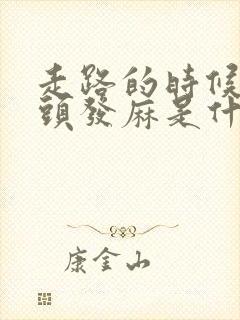 走路的時候
頭發麻是什
康金山